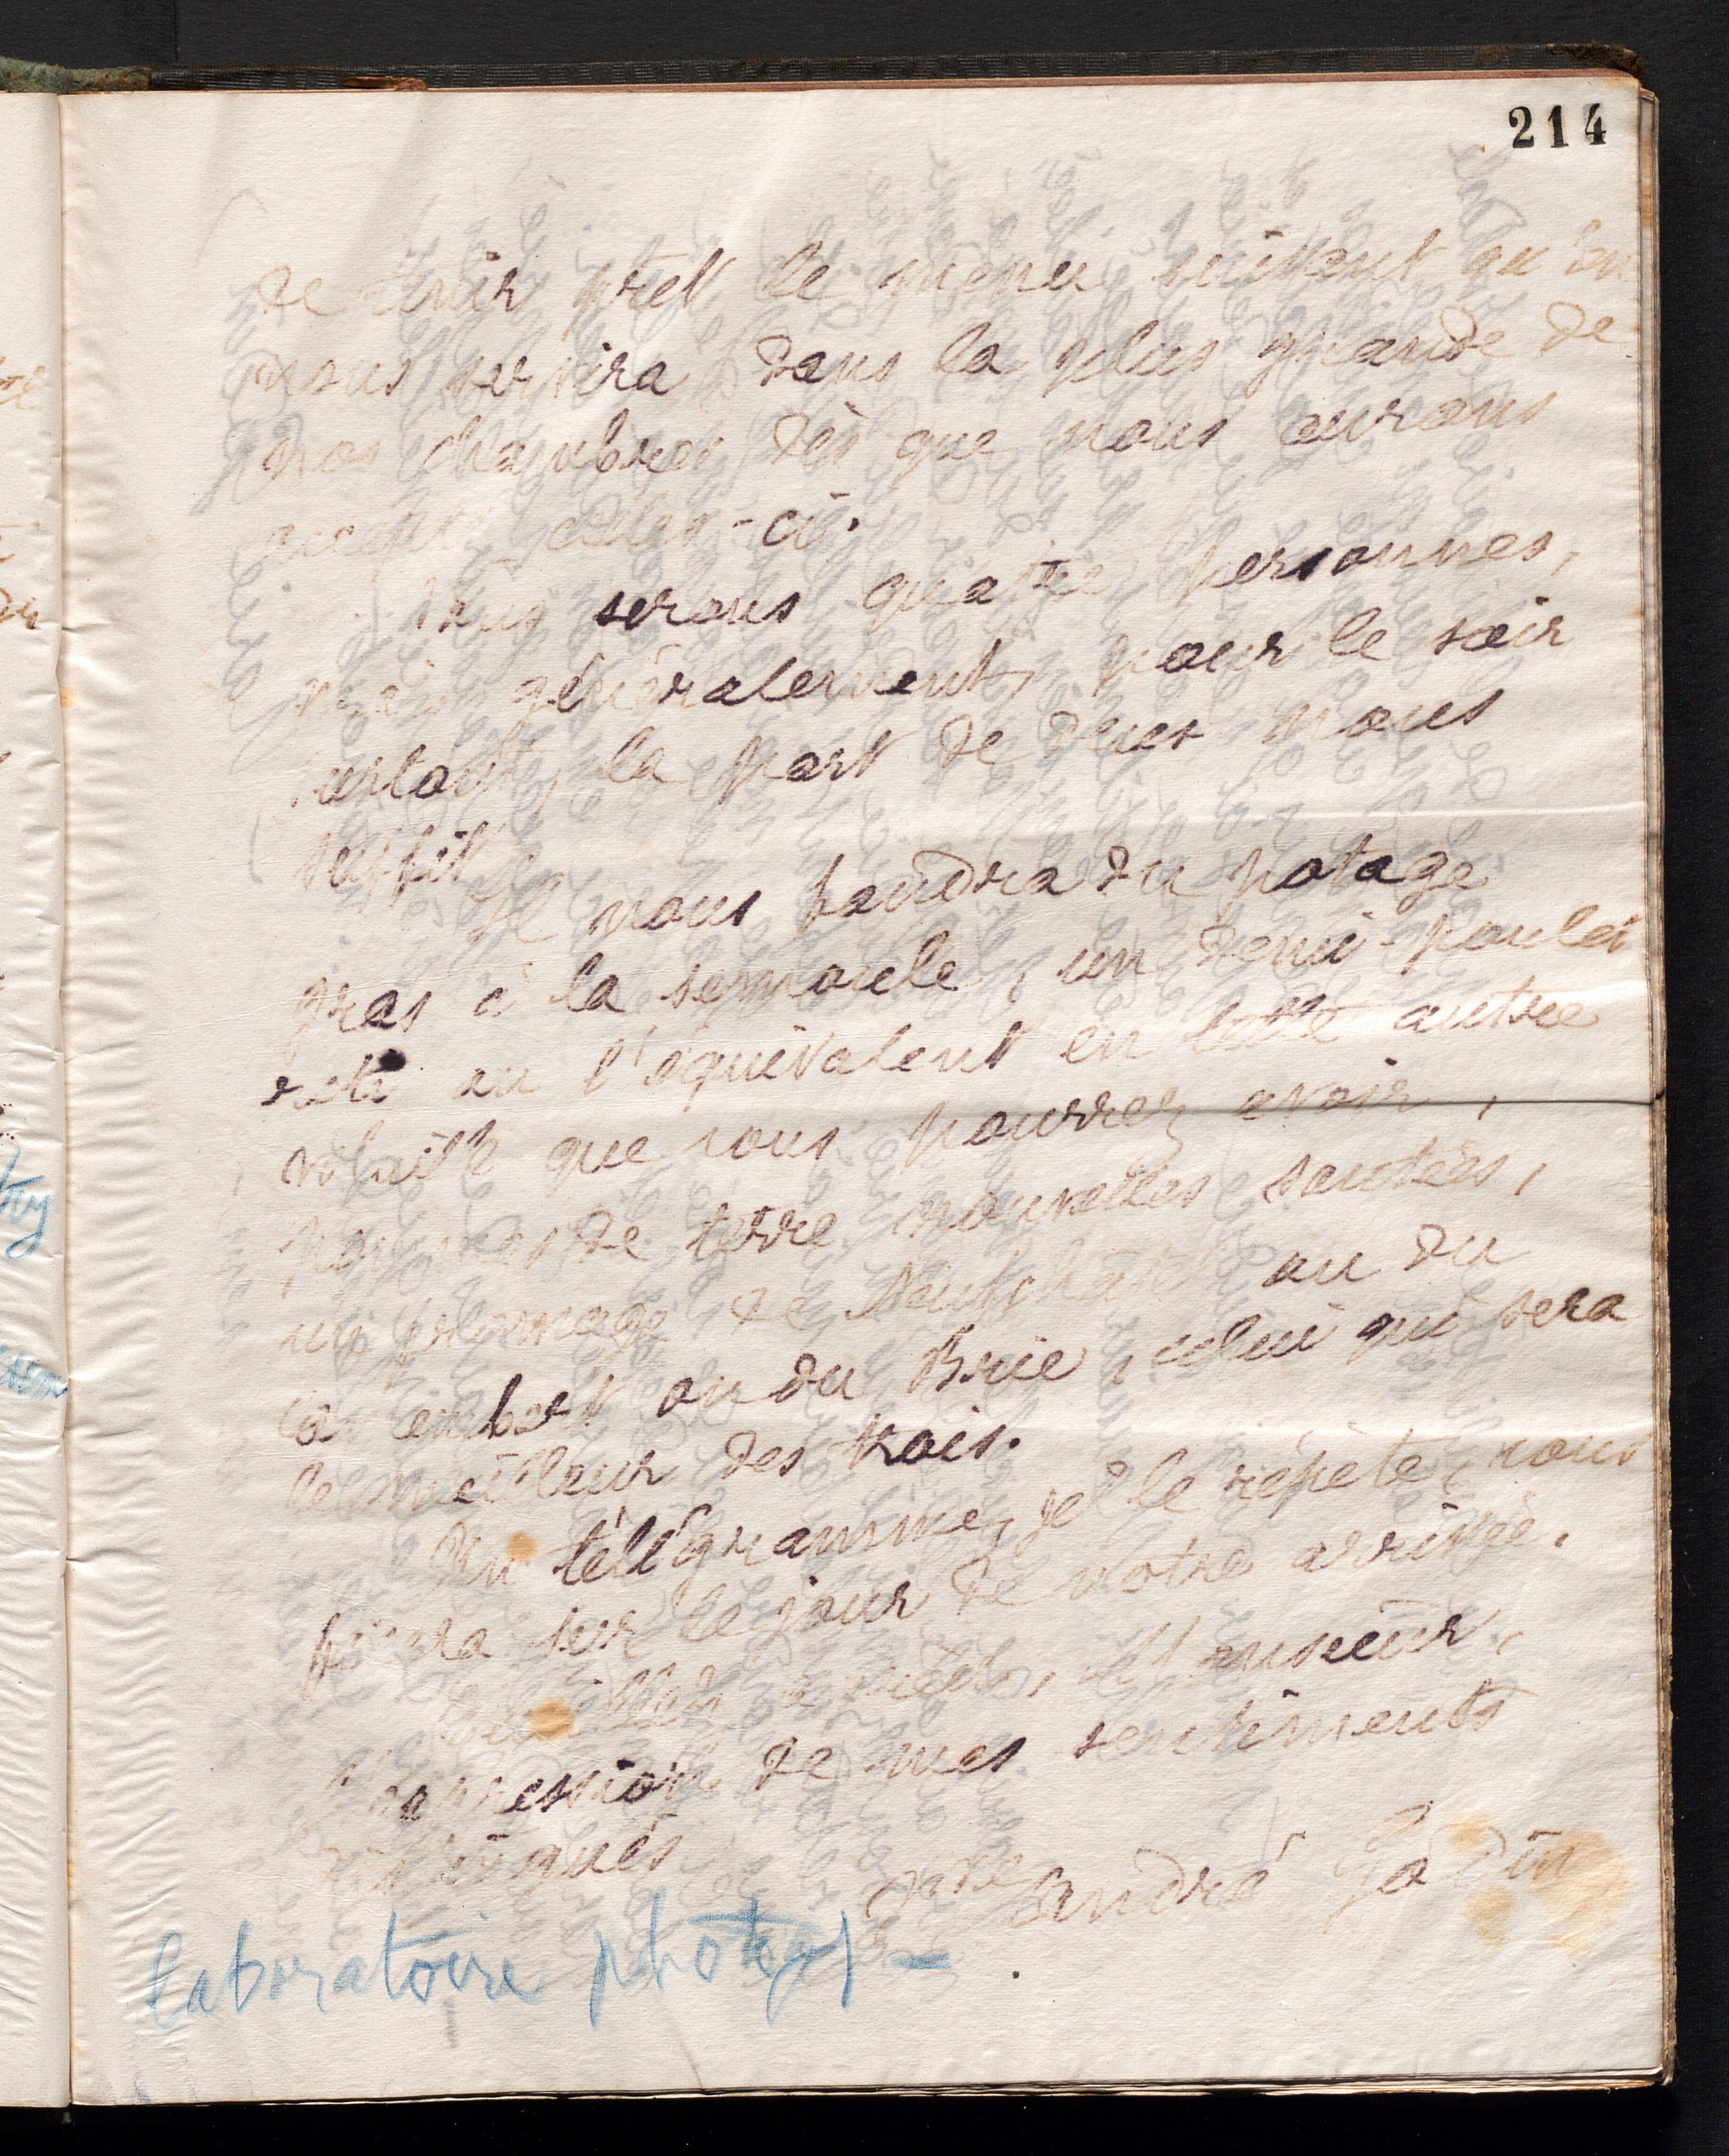 214
de tenir prêt le menu suivant qu'on
nous servira dans la plus grande de
nos chambres dès que nous aurons
accepté celles-ci.
Nous serons quatre personnes,
mais généralement, pour le soir
surtout, la part de deux nous
suffit.
Il nous faudra du potage
gras à la semoule, un demi-poulet
rôti ou l'équivalent en toute autre
volaille que vous pourrez avoir,
pommes de terre nouvelles sautées,
un fromage de Neufchâtel ou du
camembert ou du Brie, celui qui sera
le meilleur des trois.
Un télégramme, je le répète, vous
fixera sur le jour de notre arrivée.
Veuillez agréer, Monsieur,
l'expression de mes sentiments
distingués
André
laboratoire photogr -